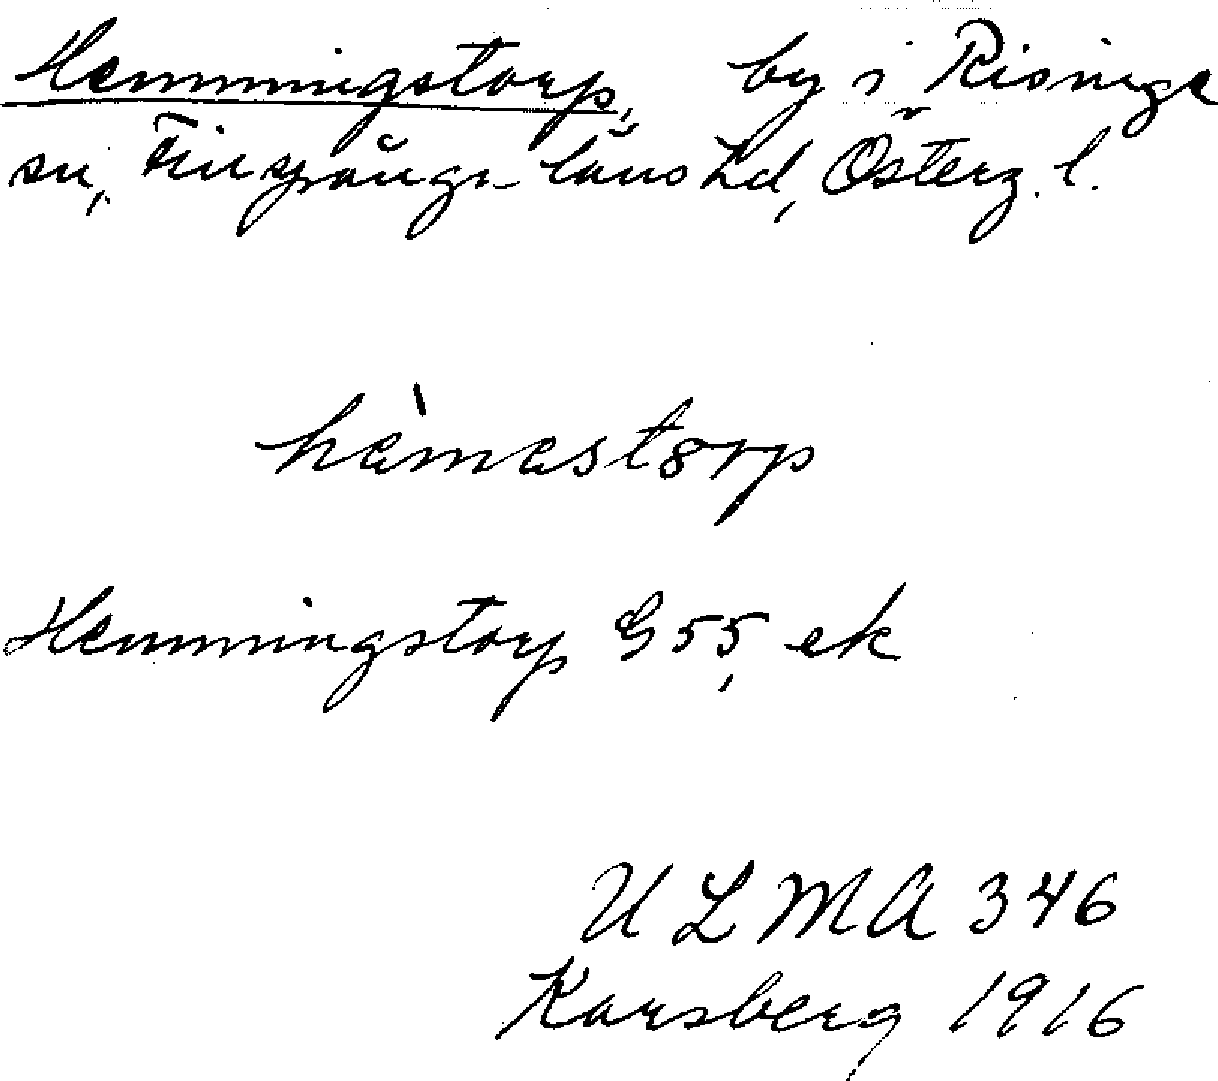 Hemmingstorp, by i Risinge
sn, Finspånga läns hd, Österg. l.
hèmestorp
Hemmingstorp G 55, ek
ULMA 346
Karsberg 1916